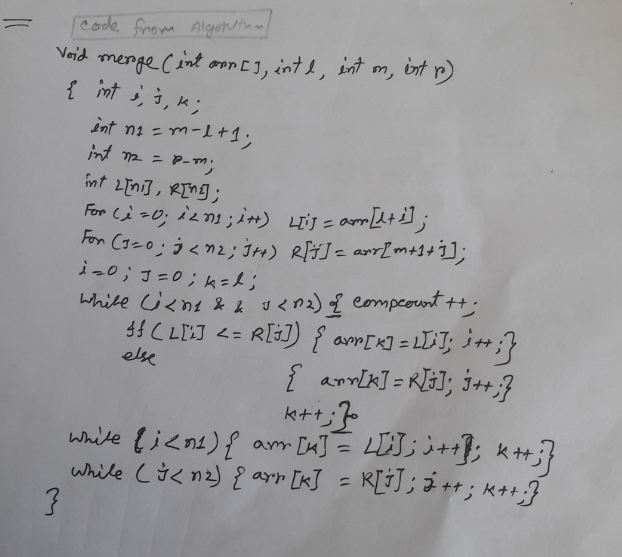 Code from Algorithm
Void merge(int arr[], int l, int m, int r)
{ int i, j, k;
int n1 = m-l+1;
int n2 = r-m;
int L[n1], R[n2];
For (i=0; i<n1; i++) L[i] = arr[l+i];
For (J=0; j<n2; J++) R[j] = arr[m+1+j];
i=0; J=0; k=l;
while (i<n1 && J<n2) { compcount++;
if (L[i] <= R[j]) { arr[k]=L[i]; i++;}
else
{ arr[k]=R[j]; j++;}
k++;}
while (i<n1) { arr[k] = L[i]; i++; k++;}
while (j<n2) { arr[k] = R[j]; j++; k++;}
}